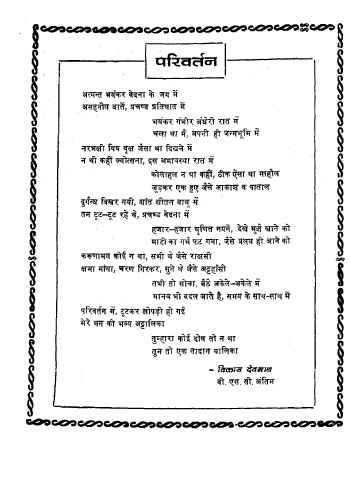 परिवर्तन
अत्यन्त भयंकर वेदना के जद में
असहनीय बातें, प्रचण्ड प्रतिघात में
भयंकर गंभीर अंधेरी रात में
चला था मैं, अपनी ही जन्मभूमि में
नरभक्षी विष वृक्ष जैसा था दिखने में
न थी कहीं ज्योत्सना, इस अमावस्या रात में
कोलाहल न था कहीं, ठीक ऐसा था माहौल
जुड़कर एक हुए जैसे आकाश व पाताल
दुर्गन्ध बिखर गयी, शांत शीतल वायु में
तन टूट-टूट रहे थे, प्रचण्ड वेदना में
हजार-हजार घृणित नयनें, देखे मुझे खाने को
माटी का गर्भ फट गया, जैसे प्रलय हो आने को
करूणामय कोई न था, सभी थे जैसे राक्षसी
क्षमा मांगा, चरण गिरकर, सुने थे जैसे अट्टहाँसी
तभी तो सोचा, बैठे अकेले-अकेले में
मानव भी बदल जाते है, समय के साथ-साथ में
परिवर्तन में, टूटकर झोपड़ी हो गई
मेरे मन की भव्य अट्टालिका
तुम्हारा कोई दोष तो न था
तुम तो एक नादान बालिका
~ विकास देवनाथ
बी. एस. सी. अंतिम